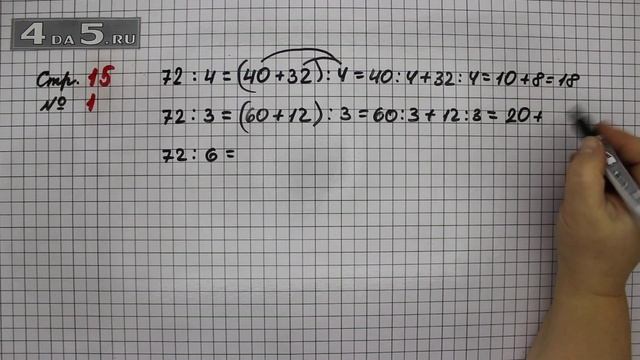 4 DA 5.RU
Стр. 15
№ 1
72 : 4 = (40 + 32) : 4 = 40 : 4 + 32 : 4 = 10 + 8 = 18
72 : 3 = (60 + 12) : 3 = 60 : 3 + 12 : 3 = 20 +
72 : 6 =